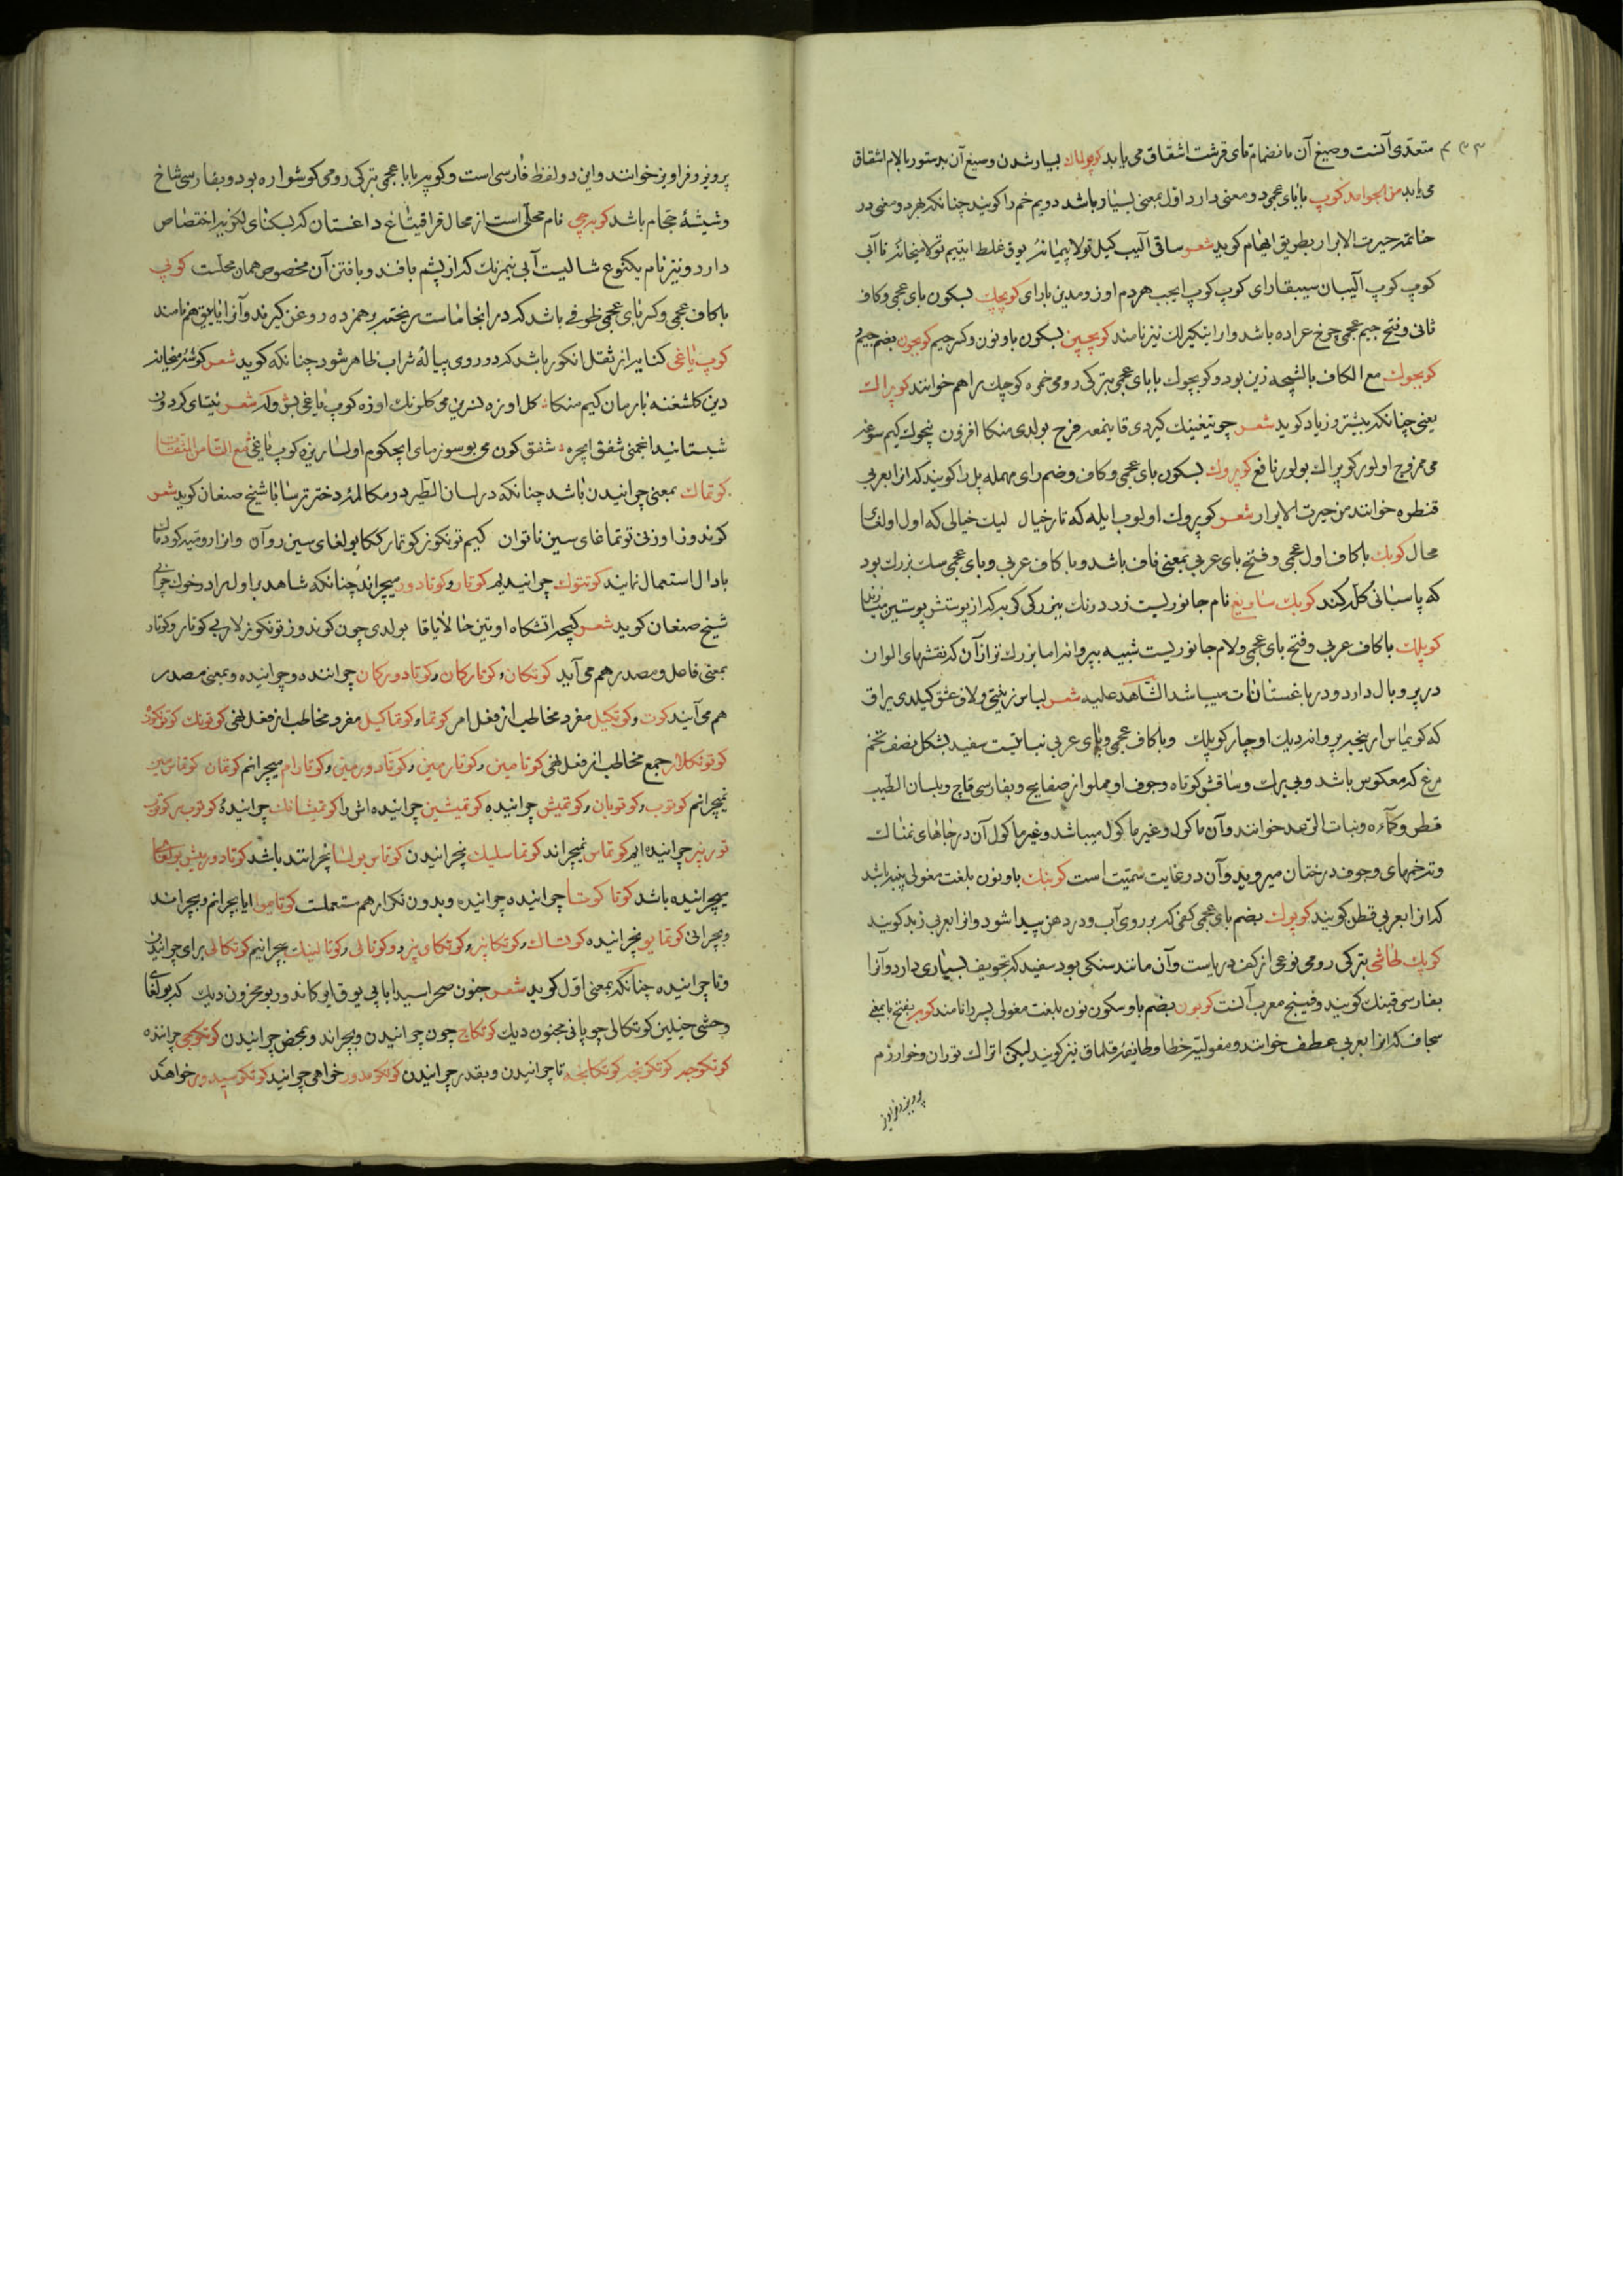 متعدی آنست و صیغ آن بانضمام تای قرشت اشتقاق می یابد کوپولماك بسیار شدن و صیغ آن بدستور بالام اشتقاق
می یابد من الجوامد کوپ بابای عجمی دو معنی دارد اول بمعنی بسیار باشد دویم خم را کویند چنانکه بهر دو معنی در
خاتمه حیرت الابرار بطریق ایهام کوید شعر ساقی آلیب کیل تولا پیمانه یوق غلط ایتیم تولا میخانه تا آنی
کوپ کوپ آلیبان سیپقارای کوپ کوپ ایچیب هر دم اوزومدین بارای کوپچك بسکون بای عجمی و کاف
ثانی و فتح جیم عجمی چرخ عراده باشد و ارا تیکیرلك نیز نامند کوبچین بسکون با و نون و کسر جیم کوبجون بضم جیم
کوبجوك مع الکاف بالشچه زین بود و کوپجوك بابای عجمی بترکی رومی خمره کوچك را هم خوانند کوپراك
یعنی چنانکه بیشتر و زیاد کوید شعر چو تیغینك کیردی قانیمغه فرح بولدی منکا افزون نچوك کیم سوغه
می ممزوج اولور کوپراك بولور نافع کوپروك بسکون بای عجمی و کاف و ضم رای مهمله پل را کویند که آنرا بعربی
قنطره خوانند من حیرت الابرار شعر کوپروك اولوب ایله که تار خیال لیك خیالی که اول اولغای
محال کوبك باکاف اول عجمی و فتح بای عربی بمعنی ناف باشد و با کاف عربی و بای عجمی سك بزرك بود
که پاسبانی کله کند کوبك ساریغ نام جانوریست زرد رنك ببزرکی کربه که از پوستش پوستین
کوپلك باکاف عربی و فتح بای عجمی و لام جانوریست شبیه بپروانه اما بزرك تر از آن که نقشهای الوان
در پر و بال دارد و در باغستانات میباشد الشاهد علیه شعر لباس زینتی و لاف عشق کیلدی یراق
که کویماس ار بنجیر پروانه دیك اوچار کوپلك و باکاف عجمی و بای عربی نباتیست سفید بشکل نصف تخم
مرغ که معکوس باشد و بی برك و ساقش کوتاه و جوف او مملو از صفایح و بفارسی قاچ و بلسان الطیب
قطن و کماءه و نبات الرعد خوانند و آن ماکول و غیر ماکول میباشد و غیر ماکول آن در جاهای نمناك
و تر خمهای و جوف درختان میروید و آن در غایت سمیت است کوبنك با و نون بلغت مغولی پنبه باشد
که آنرا بعربی قطن کویند کوپوك بضم بای عجمی کفی که بر روی آب و در دهن پیدا شود و آنرا بعربی زبد کویند
کوپك طاشی بترکی رومی نوعی از کف دریاست و آن مانند سنکی بود سفید که تجویف بسیاری دارد و آنرا
بفارسی فینك کویند و فینج معرب آنست کوبون بضم با و سکون نون بلغت مغولی پسر را نامند کوبه بفتح با بمعنی
سجاف که آنرا بعربی عطف خوانند و مغولیه خطا و طایفه قلماق نیز کویند لیکن اتراك توران و خوارزم
پرویز و فراویز
پرویز و فراویز خوانند و این دو لفظ فارسی است و کوپه بابا عجمی بترکی رومی کوشواره بود و بفارسی شاخ
و شیشهٔ حجام باشد کوبه چی نام محلی است از محال قراقیتاغ داغستان که بسکنای لکزیه اختصاص
دارد و نیز نام یکنوع شالیست آبی نیم رنك که از پشم بافند و بافتن آن مخصوص همان محلست کوپی
باکاف عجمی و کسر بای عجمی ظرفی باشد که در آنجا ماست ریخته برهمزده روغن کیرند و آنرا یاییق هم نامند
کوپ یاغی کنایه از ثفل انکور باشد که در روی پیالهٔ شراب ظاهر شود چنانکه کوید شعر کوشهٔ میخانه
دین کلشنغه بارمان کیم منکا کل اوزه نسرین می کلونك اوزه کوپ یاغی بش ولد شعر نیتای کردون
شبستانیدا انجمنی شفق ایچره شفق کون می بوسوزمای ایچکوم اولسا ریزه کوپ یاغی مع التاء من المتفرقات
کوتماك بمعنی چرانیدن باشد چنانکه در لسان الطیر در مکالمهٔ دختر ترسا با شیخ صنعان کوید شعر
کوندوز اوزنی توتماغای سین ناتوان کیم تونکوز کوتمارککا بولغای سین روان و آنرا رومیه کودماك
بادال استعمال نمایند کوتتوك چرانیدیم کوتار و کوتادور میچراند چنانکه شاهد بر اوله در خوك چرانی
شیخ صنعان کوید شعر کیچه آتشکاه اوتین خالایاقا بولدی چون کوندوز تونکوزلاربی کوتار و کوتار
بمعنی فاعل و مصدر هم می آید کوتکان و کوتارکان و کوتادورکان چراننده و چرانیده و بمعنی مصدر
هم می آیند کوت و کوتکیل مفرد مخاطب از فعل امر کوتما و کوتماکیل مفرد مخاطب از فعل نهی کوتونك کوتونکوز
کوتونکلار جمع مخاطب از فعل نهی کوتامین و کوتارمین و کوتادورمین و کوتارام میچرانم کوتمان کوتماسمین
نمیچرانم کوتوب و کوتوبان و کوتمیش چرانیده کوتمیشین چرانیده اش را کوتمیشانك چرانیدهٔ کوتوب بر کوتوب
تور بیز چرانیده ایم کوتماس نمیچراند کوتماسلیك نچرانیدن کوتماس بولسا نچراند باشد کوتادورمیش بولغای
میچرانیده باشد کوتا کوتا چرانیده چرانیده و بدون تکرار هم مستعملست کوتایموا ایا بچرانم و بچراند
و بچرانی کوتمایو نچرانیده کوتساك و کوتکابیز و کوتکاویز و کوتالی و کوتالینك بچرانیم کوتکالی برای چرانیدن
و تا چرانیده چنانکه بمعنی اول کوید شعر جنون صحراسیدا بابی یوق ایرکاندور بو محزون دیك که بولغای
وحشی خیلین کوتکالی چوپانی مجنون دیك کوتکاچ چون چرانیدن و بچراند و بمحض چرانیدن کوتکوچی چراننده
کوتکوچه کوتکونچه کوتکانچه تا چرانیدن و بقدر چرانیدن کوتکومدور خواهی چرانید کوتکوسیدور خواهند